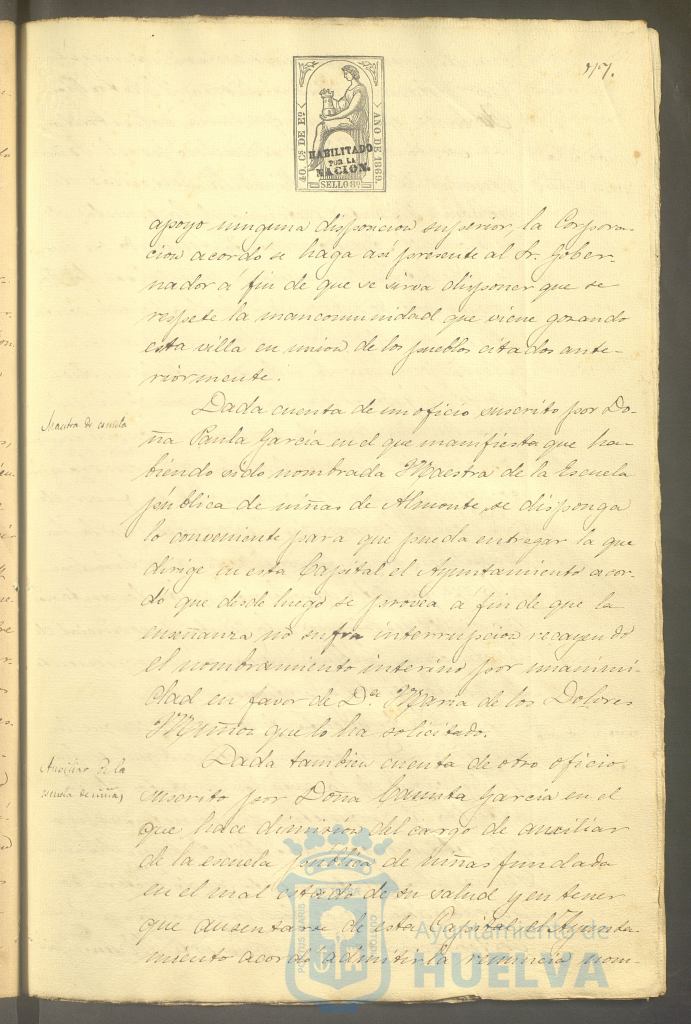 117.
40. Cs DE Eo
AÑO DE 1869.
HABILITADO
POR LA
NACION.
SELLO 8º
apoyo ninguna disposicion superior, la Corpora-
cion acordó se haga así presente al Sr. Gober-
nador á fin de que se sirva disponer que se
respete la mancomunidad que viene gozando
esta villa en union de los pueblos citados ante-
riormente.
Maestra de escuela
Dada cuenta de un oficio suscrito por Do-
ña Paula Garcia en el que manifiesta que ha-
biendo sido nombrada Maestra de la Escuela
pública de niñas de Almonte, se disponga
lo conveniente para que pueda entregar la que
dirige en esta Capital, el Ayuntamiento acor-
dó que desde luego se provea á fin de que la
enseñanza no sufra interrupcion recayendo
el nombramiento interino por unanimi-
dad en favor de D.ª Maria de los Dolores
Muñoz que lo ha solicitado.
Auxiliar de la
escuela de niñas
Dada tambien cuenta de otro oficio
suscrito por Doña Garcia en el
que hace dimision del cargo de auxiliar
de la escuela pública de niñas fundada
en el mal estado de su salud y en tener
que ausentarse de esta Capital el Ayunta-
miento acordó admitir la renuncia nom-
Ayuntamiento de
HUELVA